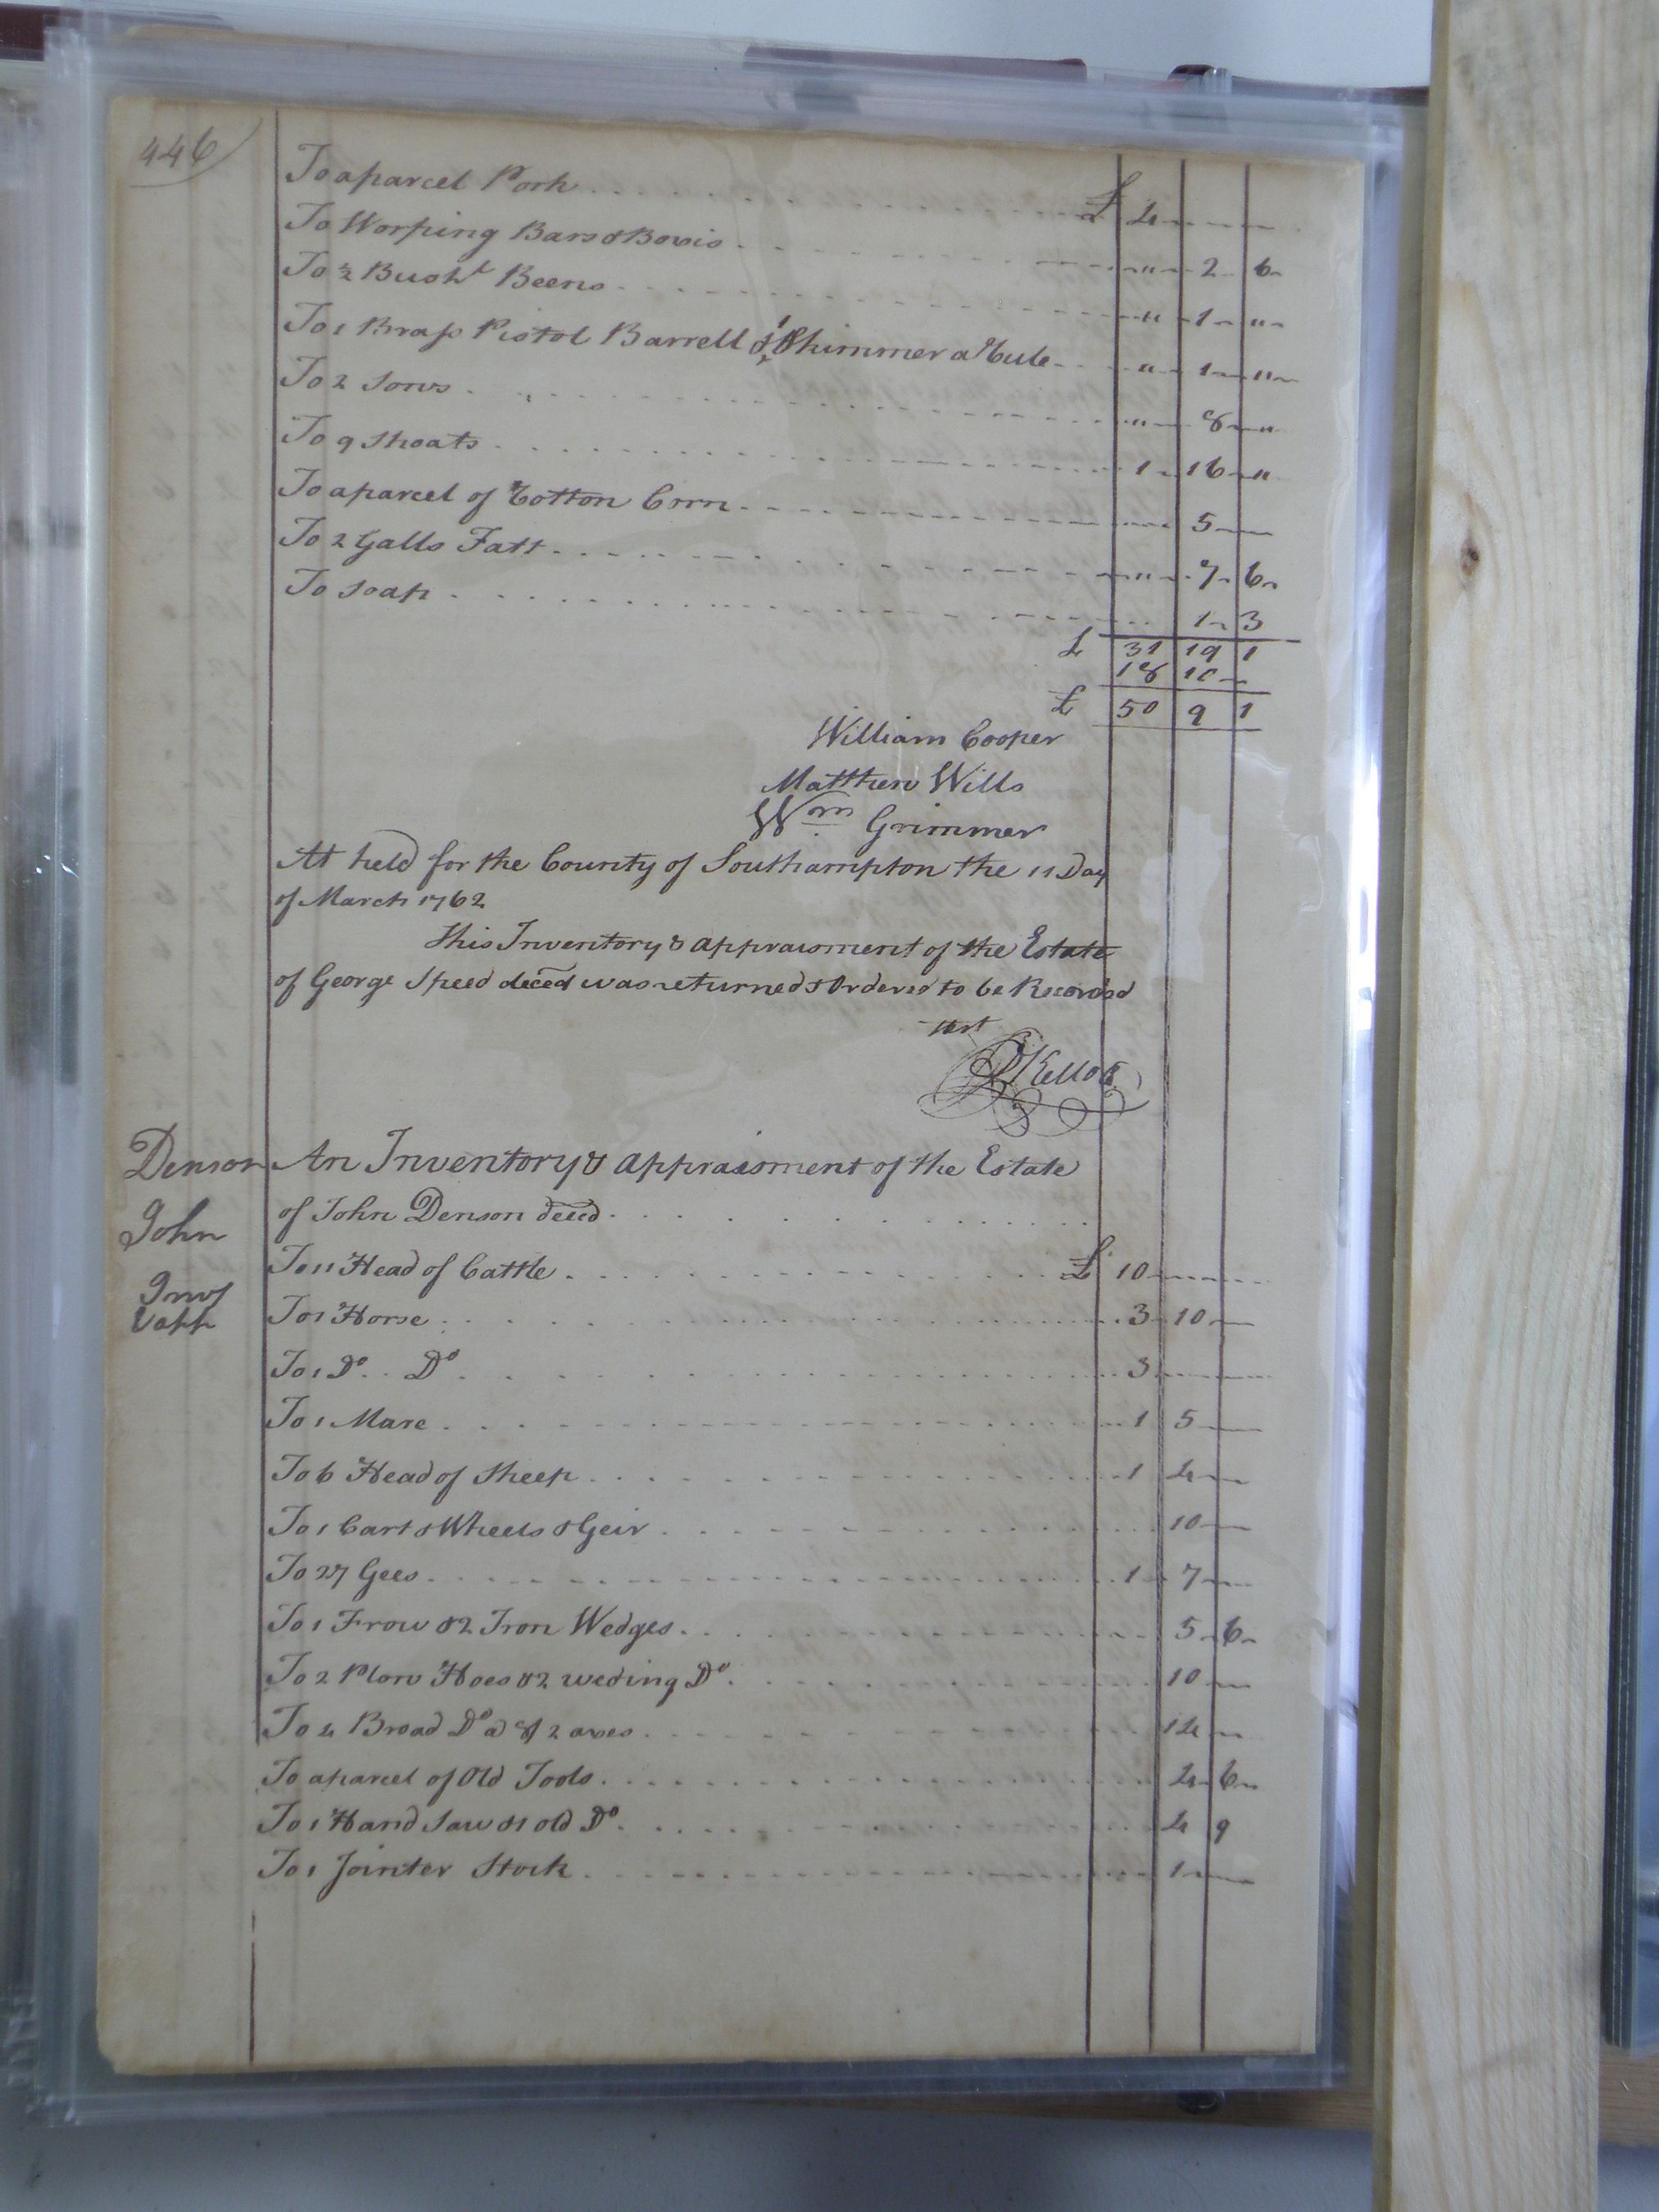 446
To aparcel Pork £ 4
To Worping Bars & Boxis " 2 6
To ½ Bushl Beens " 1 "
To 1 Brass Pistol Barrell & 1 Shimmer a " 1 "
To 2 Sows " 8 "
To 9 Shoats 1 16 "
To aparcel of Cotton Corn 5
To 2 Galls Fatt " 7 6
To Soap 1 3
£ 31 19 1
18 10
£ 50 9 1
William Cooper
Matthew Wills
Wm Grimmer
At held for the County of Southampton the 11 Day
of March 1762
This Inventory & appraisment of the Estate
of George Speed deced was returned & Ordered to be Recorded
Test
R Kello C
Denson An Inventory & appraisment of the Estate
John of John Denson deced
To 11 Head of Cattle £ 10
Inv
& app To 1 Horse 3 10
To 1 Do Do 3
To 1 Mare 1 5
To 6 Head of Sheep 1 4
To 1 Cart & Wheels & Geir 10
To 27 Gees 1 7
To 1 Frow & 2 Iron Wedges 5 6
To 2 Plow Hoes & 2 weding Do 10
To 4 Broad Do & 2 axes 14
To aparcel of Old Tools 4 6
To 1 Hand Saw & 1 old Do 4 9
To 1 Jointer Stock 1